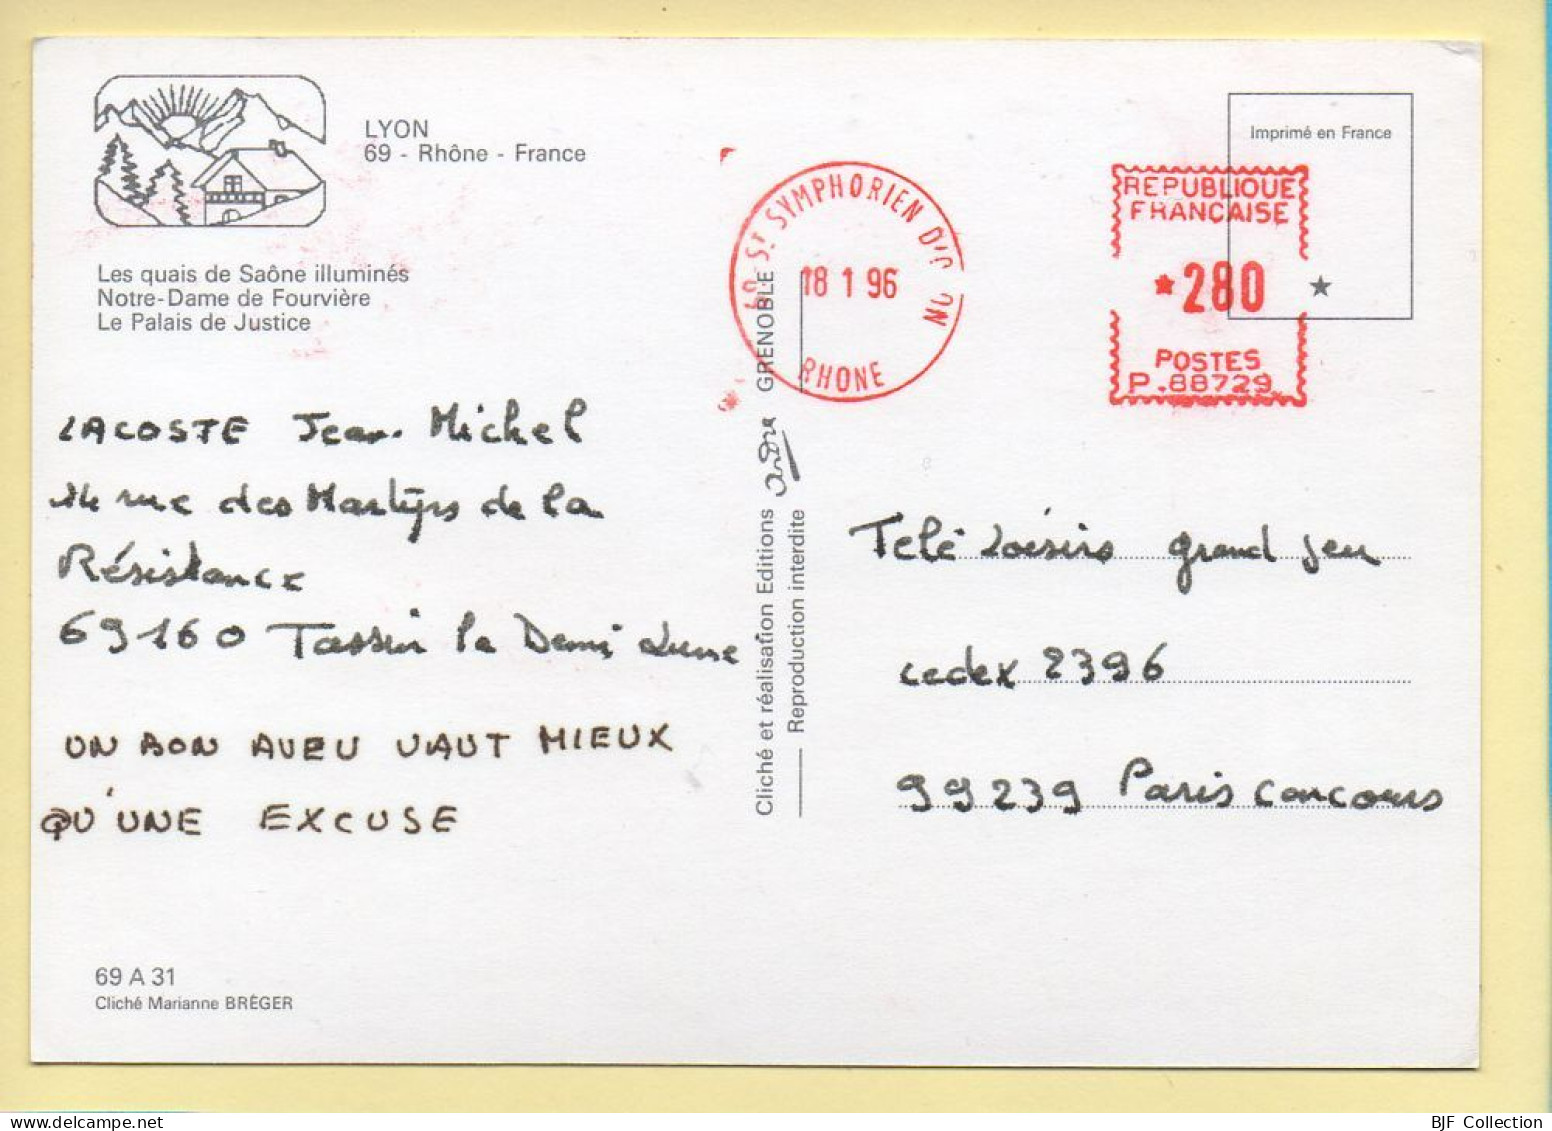 LYON
69 - Rhône - France
Les quais de Saône illuminés
Notre-Dame de Fourvière
Le Palais de Justice
LACOSTE Jean-Michel
14 rue des Martyrs de la
Résistance
69160 Tassin la Demi Lune
UN BON AVEU VAUT MIEUX
QU'UNE EXCUSE
69 A 31
Cliché Marianne BRÉGER
Cliché et réalisation Editions andré GRENOBLE
Reproduction interdite
69 ST SYMPHORIEN D'O ON
18 1 96
RHONE
Imprimé en France
REPUBLIQUE
FRANCAISE
*280
POSTES
P.88729
Télé Loisirs grand jeu
cedex 2396
99239 Paris concours
BJF Collection